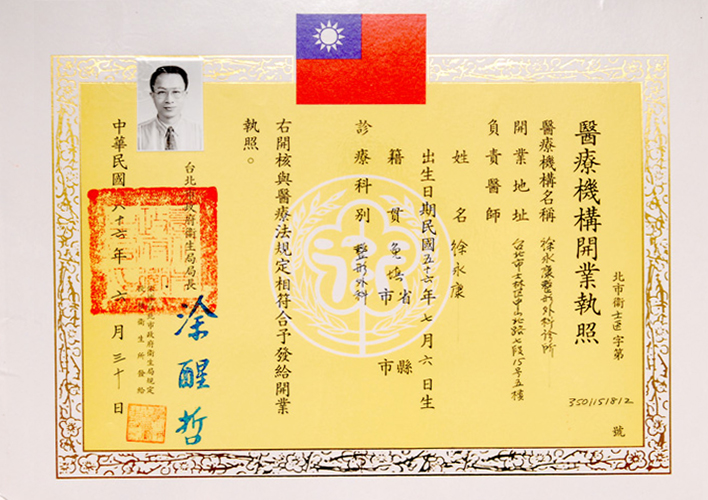 醫療機構開業執照
北市衛士医字第
3501151812
號
醫療機構名稱 徐永康整形外科診所
開業地址 台北市士林區中山北路七段15号五樓
負責醫師
姓名 徐永康
出生日期民國五十六年七月六日生
籍貫 免填 省市 縣市
診療科別 整形外科
右開核與醫療法規定相符合予發給開業
執照。
台北市政府衛生局局長
涂醒哲
市政府衛生局規定
衛生所發給
中華民國八十七年六月三十日